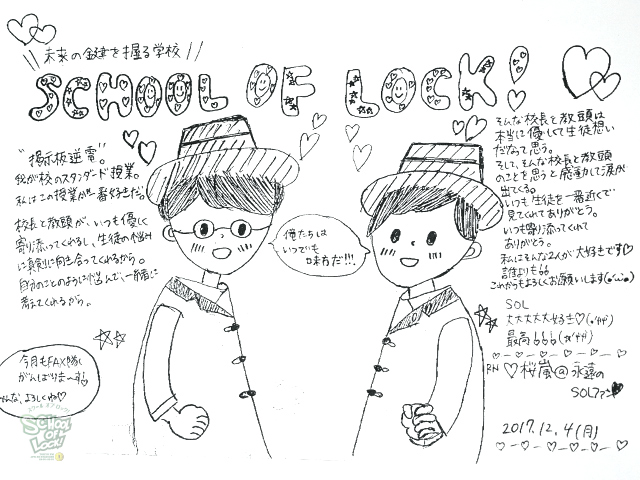 \\ 未来の鍵を握る学校 //
SCHOOL OF LOCK!
"掲示板逆電"。
我が校のスタンダード授業。
私はこの授業が一番好きだ。
校長と教頭が、いつも優しく
寄り添ってくれるし、生徒の悩み
に真剣に向き合ってくれるから。
自分のことのように悩んで、一緒に
考えてくれるから。
俺たちは
いつでも
味方だ!!!
そんな校長と教頭は
本当に優しくて生徒想い
だなって思う。
そして、そんな校長と教頭
のことを思うと感動して涙が
出てくる。
いつも生徒を一番近くで
見てくれてありがとう。
いつも寄り添ってくれて
ありがとう。
私はそんな2人が大好きです♡
誰よりも
これからもよろしくお願いします(•'ω'•)
SOL
大大大大大好き♡
最高
RN ♡桜嵐@永遠の
SOLファン
2017.12.4(月)
今月もFAX隊
がんばりまーす!
みんな、よろしくね♡
SCHOOL
OF
LOCK!